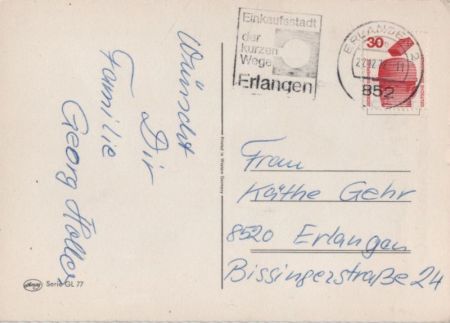 Wünscht
Dir
Familie
Georg Holler
Serie GL 77
Printed in Western Germany
Einkaufsstadt
der
kurzen
Wege
Erlangen
ERLANGEN 2
852
30
Frau
Käthe Gehr
8520 Erlangen
Bissingerstraße 24